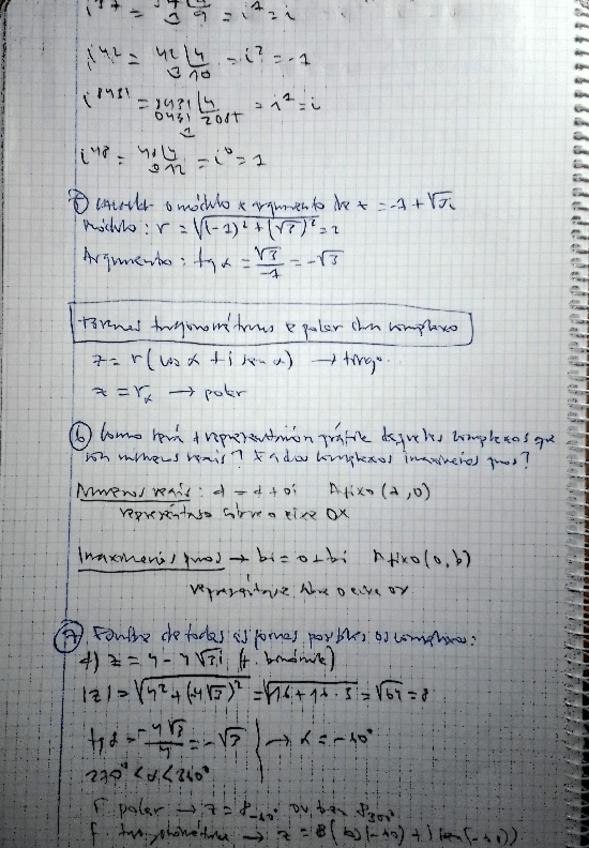 = i¹ = i
i⁴² = 42 |4 = i² = -1
i⁸⁴³¹ = 8431 |4 = i³ = i
i⁴⁸ = 48 |4 = i⁰ = 1
0 12
5) Calcular o módulo e argumento de z = -1 + √3i
Módulo: r = √(-1)² + (√3)² = 2
Argumento: tg α = √3/-1 = -√3
Formas trigonométricas e polar dun complexo
z = r(cos α + i sen α) → trigo.
z = r_α → polar
6) Como será a representación gráfica daqueles complexos que
son números reais? E a dos complexos imaxinarios puros?
Números reais: a = a + 0i Afixo (a, 0)
represéntase sobre o eixe OX
Imaxinarios puros → bi = 0 + bi Afixo (0, b)
represéntase sobre o eixe
7) de todas as formas posibles os complexos:
a) z = 4 - 4√3i (f. binómica)
|z| = √4² + (-4√3)² = √16 + 16 · 3 = √64 = 8
tg α = -4√3/4 = -√3 → α = -60°
270° < α < 360°
F. polar → z = 8₋₆₀° ou ben 8₃₀₀°
f. trigonométrica → z = 8(cos(-60) + i sen(-60))